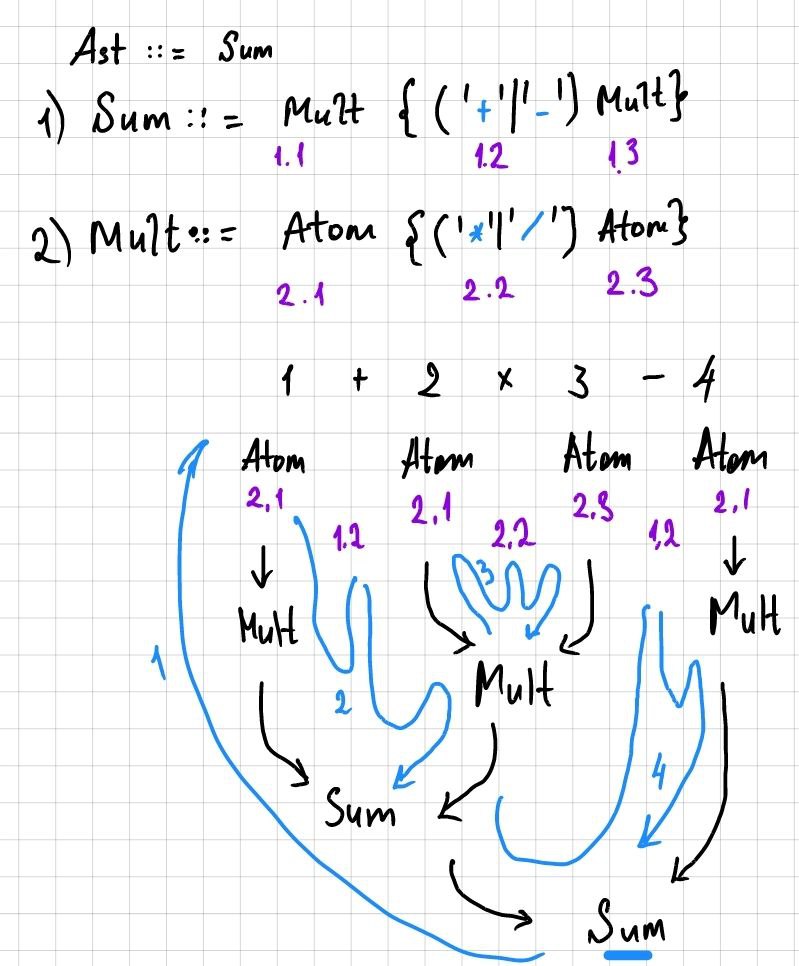 Ast ::= Sum
1) Sum ::= Mult { ('+'|'-') Mult}
1.1 1.2 1.3
2) Mult ::= Atom {('*'|'/') Atom}
2.1 2.2 2.3
1 + 2 x 3 - 4
Atom Atom Atom Atom
2,1 1.2 2,1 2,2 2,3 1,2 2,1
3
Mult Mult
1 2 Mult
4
Sum
Sum